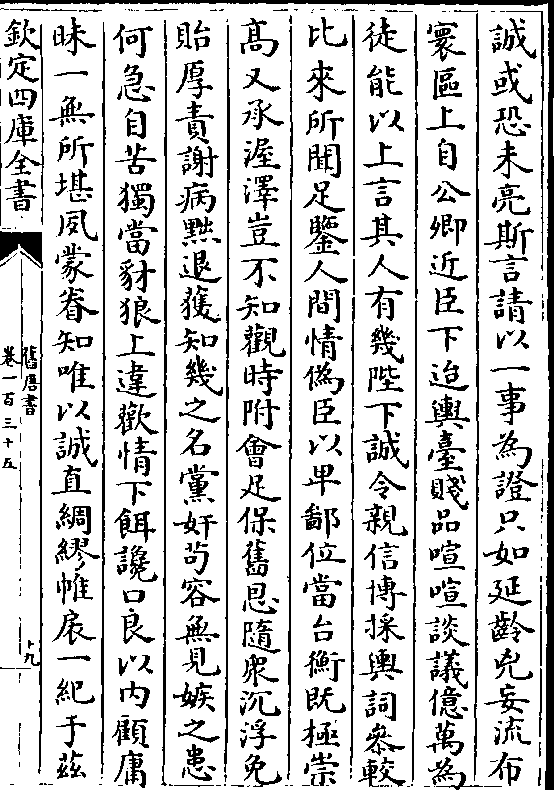 誠或恐未亮斯言請以一事為證只如延齡兇妄流布
寰區上自公卿近臣下迨輿臺賤品喧喧談議億萬為
徒能以上言其人有幾陛下誠令親信博採輿詞叅較
比來所聞足鑒人間情偽臣以卑鄙位當台衡既極崇
髙又承渥澤豈不知觀時附會足保舊恩隨衆沉浮免
貽厚責謝病黜退獲知幾之名黨奸苟容無見嫉之患
何急自苦獨當豺狼上違歡情下餌讒口良以内顧庸
昧一無所堪夙蒙眷知唯以誠直綢繆帷扆一紀于茲
欽定四庫全書
舊唐書
卷一百三十五
十九